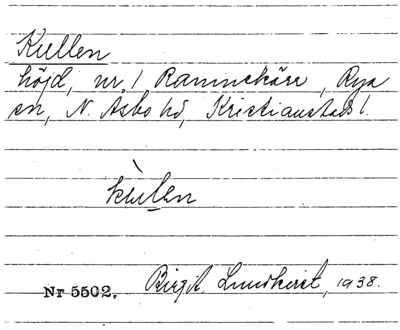 Kullen
höjd, nr. 1 Ramnekärr, Rya
sn, N. Åsbo hd, Kristianstads l.
kùlen
Nr 5502. Birgit Lundkvist, 1938.